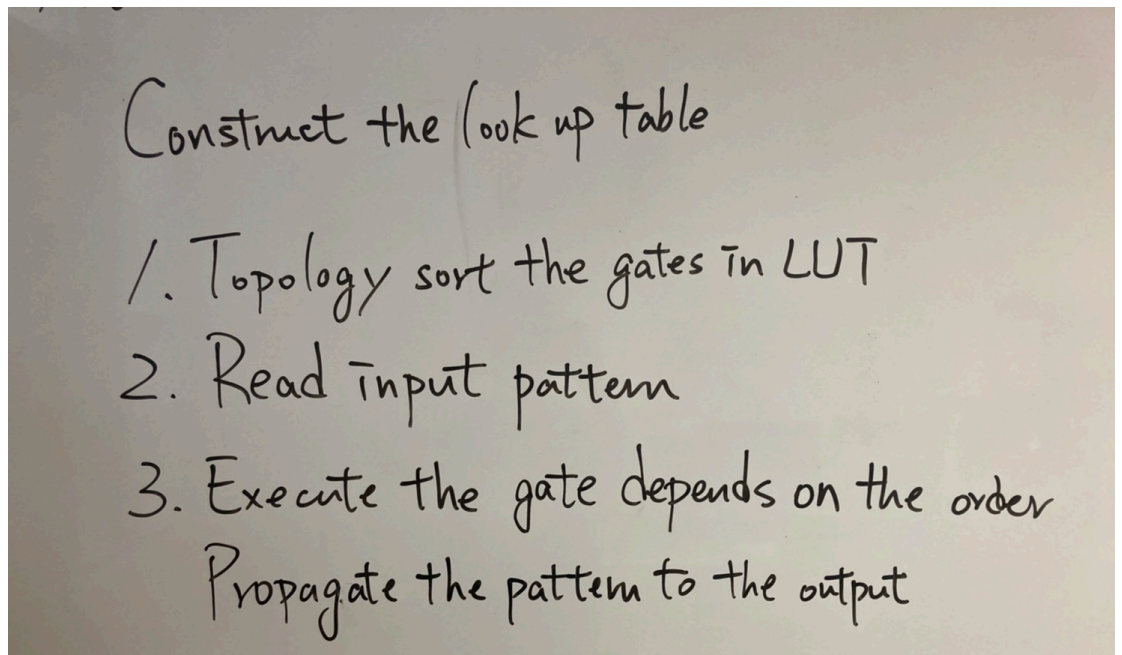 Construct the look up table
1. Topology sort the gates in LUT
2. Read input pattern
3. Execute the gate depends on the order
Propagate the pattern to the output